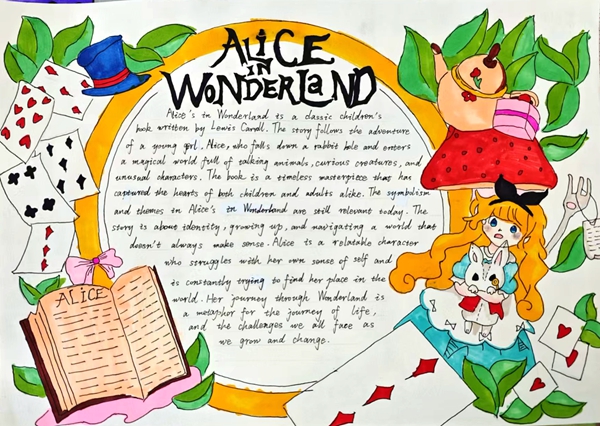 ALiCE
iN
WONDERLaND
Alice's in Wonderland is a classic children's
book written by Lewis Carroll. The story follows the adventure
of a young girl, Alice, who falls down a rabbit hole and enters
a magical world full of talking animals, curious creatures, and
unusual characters. The book is a timeless masterpiece that has
captured the hearts of both children and adults alike. The symbolism
and themes in Alice's in Wonderland are still relevant today. The
story is about identity, growing up, and navigating a world that
doesn't always make sense. Alice is a relatable character
who struggles with her own sense of self and
is constantly trying to find her place in the
world. Her journey through Wonderland is
a metaphor for the journey of life,
and the challenges we all face as
we grow and change.
ALICE